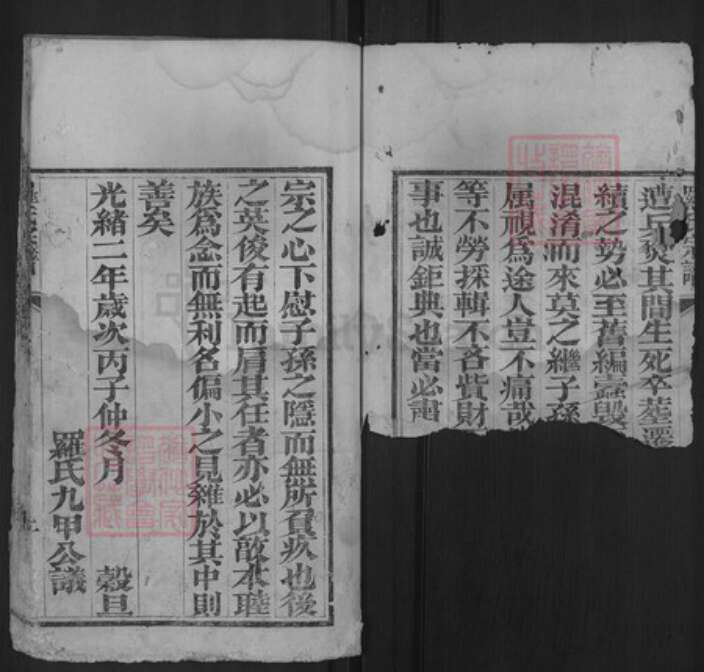 遭兵燹其間生死卒塟遷
續之勢必至舊編蠹毁
混淆而來莫之繼子孫
屬視爲途人豈不痛哉
等不勞採輯不吝貲財
事也誠鉅典也當必肅
宗之心下慰子孫之隱而無所負疚也後
之英俊有起而肩其任者亦必以敬本睦
族爲念而無利名偏小之見雜於其中則
善矣
光緒二年歲次丙子仲冬月 穀旦
羅氏九甲公議